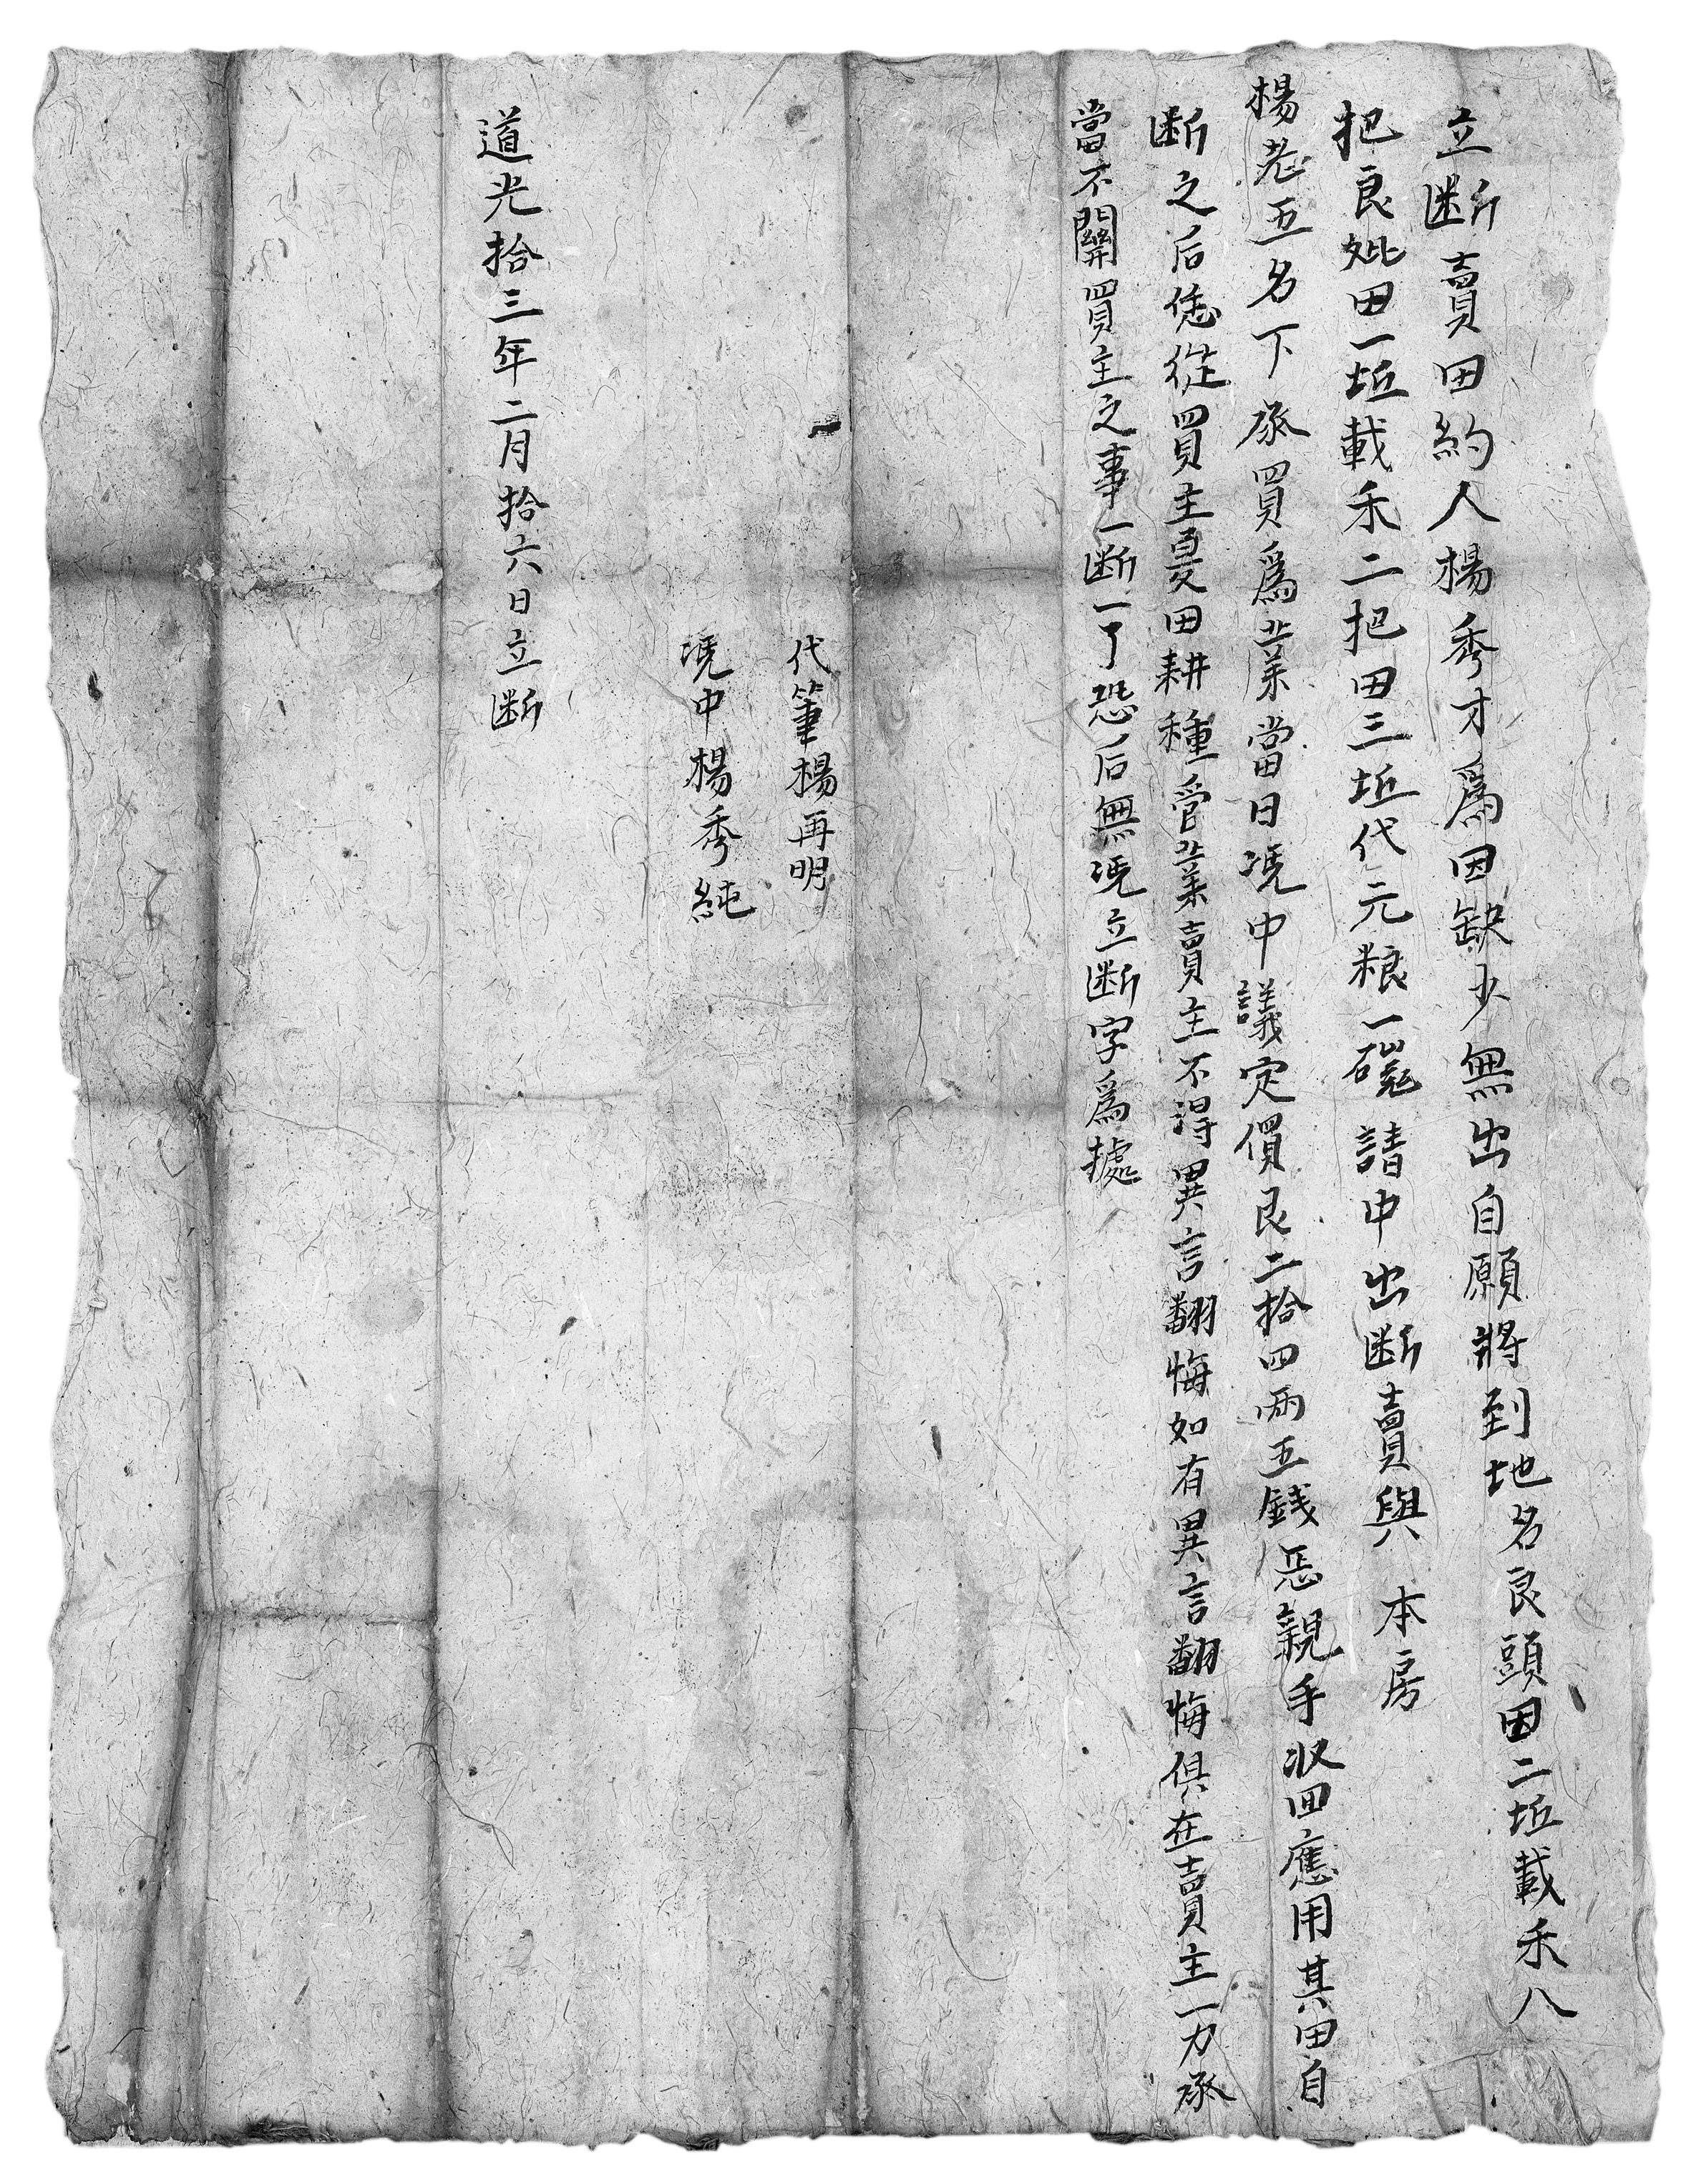 立断賣田約人楊秀才爲因缺少無出自願將到地名良頭田二坵載禾八
把良妣田一坵載禾二把田三坵代元粮一碗請中出断賣與本房
楊老五名下承買爲業當日凭中議定價艮二拾四兩五錢恁親手收回應用其田自
断之后恁從買主憂田耕種管業賣主不得異言翻悔如有異言翻悔俱在賣主一力承
當不關買主之事一断一了恐后無凭立断字爲據
代筆楊再明
凭中楊秀純
道光拾三年二月拾六日立断